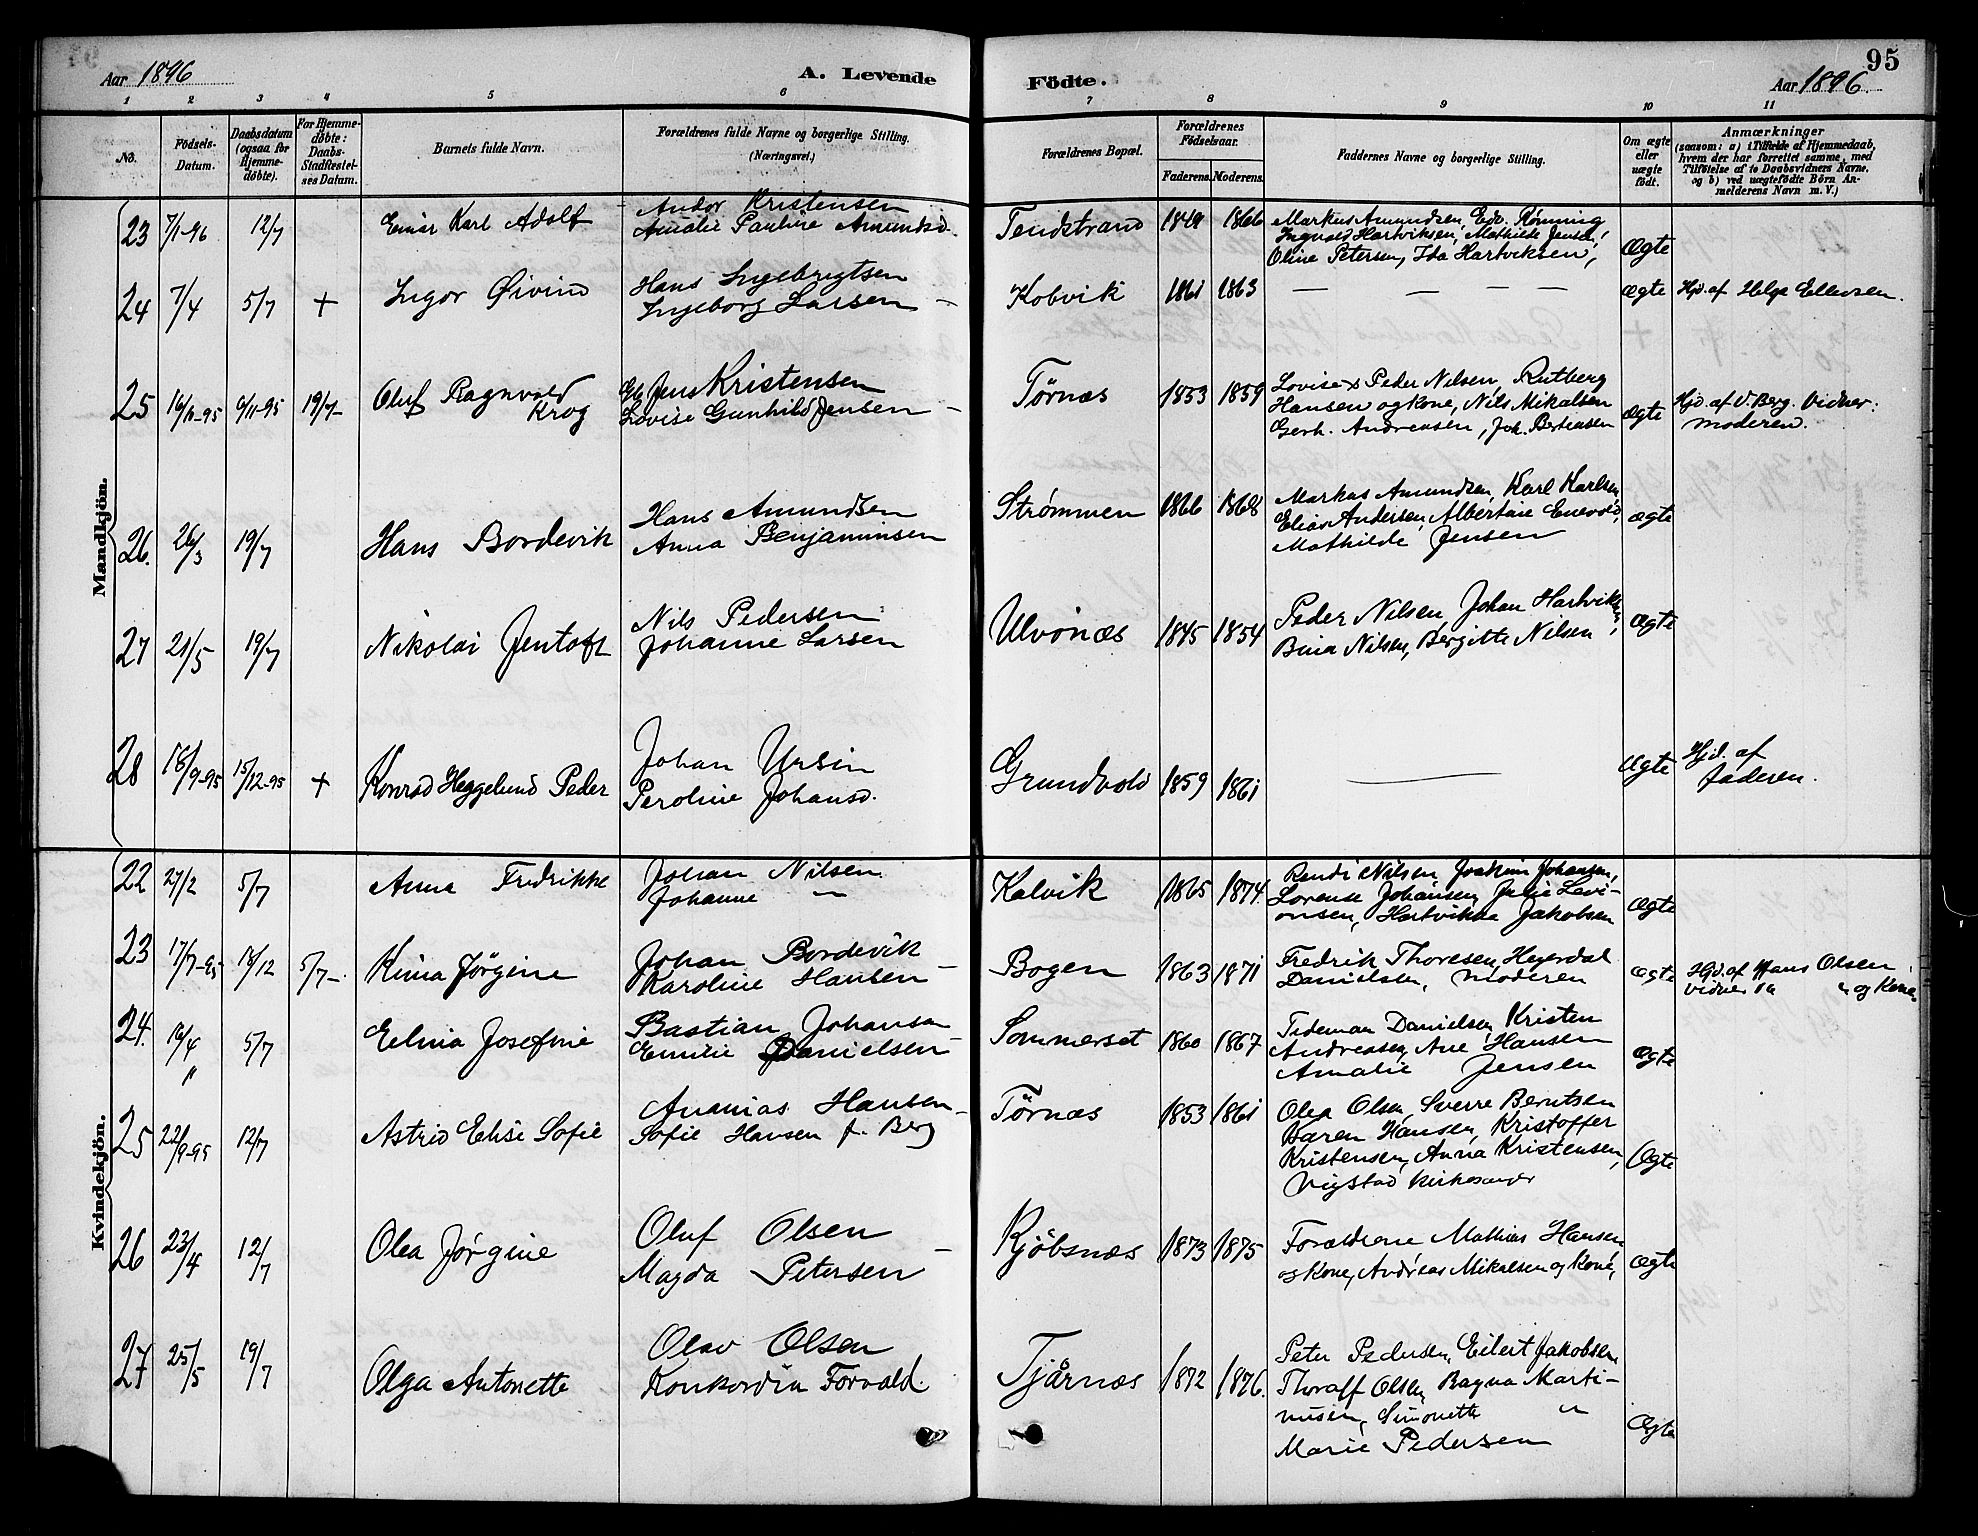 95
Aar 1896
A. Levende Födte.
Aar 1896.
1 2 3 4 5 6 7 8 9 10 11
No.
Födsels-
Datum.
Daabsdatum
(ogsaa for
Hjemme-
døbte).
For Hjemme-
døbte:
Daabs-
Stadfæstel-
ses Datum.
Barnets fulde Navn.
Forældrenes fulde Navne og borgerlige Stilling.
(Næringsvei.)
Forældrenes Bopæl.
Forældrenes
Födselsaar.
Faderens. Moderens.
Faddernes Navne og borgerlige Stilling.
Om ægte
eller
uægte
födt.
Anmærkninger
(saasom: a) i Tilfælde af Hjemmedaab,
hvem der har forrettet samme, med
Tilföielse af to Daabsvidners Navne,
og b) ved uægtefödte Börn An-
melderens Navn m. V.)
Mandkjön.
23 7/1-96 12/7 Einar Karl Adolf
Andor Kristensen
Amalie Pauline Amundsd.
Tendstrand 1849 1866
Markus Amundsen, Edv. Rønning
Ingvald Hartviksen, Mathilde Jensen,
Oline Petersen, Ida Hartviksen,
Ægte
24 7/4 5/7 + Ingor Øivind
Hans Ingebrigtsen
Ingeborg Larsen –
Kobvik 1861 1863 — — — —
ægte Hjd. af Helge Ellevsen.
25 16/10-95 6/11-95 19/7- Oluf Ragnvald
Krog
Jens Kristensen
Lovise Gunhild Jensen –
Tørnæs 1853 1859
Lovise & Peder Nilsen, Rutberg
Hansen og kone, Nils Mikalsen
Gerh. Andreasen, Joh. Berteusen
ægte Hjd. af V. Berg. Vidner:
Moderen.
26. 26/3 19/7 Hans Bordevik
Hans Amundsen
Anna Benjaminsen
Strømmen 1866 1868
Markus Amundsen, Karl Karlsen
Elias Andersen, Albertine Enevold,
Mathilde Jensen
ægte
27 21/5 19/7 Nikolai Jentoft
Nils Pedersen
Johanne Larsen
Ulvönæs 1845 1854
Peder Nilsen, Johan Hartviksen,
Bina Nilsen, Bergitte Nilsen,
ægte
28 18/9-95 15/12-95 + Konrad Heggelund Peder
Johan Ursin
Peroline Johansd.
Grundvold 1859 1861 —
ægte Hjd. af
faderen.
Kvindekjön.
22 27/2 5/7 Anna Fredrikke
Johan Nilsen
Johanne "
Kalvik 1865 1874.
Randi Nilsen, Joakim Johansen,
Lorense Johansen, Julie Levi-
onsen, Hartvikka Jakobsen
ægte
23 17/7-95 18/12 5/7-. Kina Jørgine
Johan Bordevik
Karoline Hansen –
Bogen 1863 1871
Fredrik Thoresen, Hegerdal
Danielsen, Moderen
ægte Hjd. af Hans Olsen
vidner " og Kone
24. 16/4 5/7 Eelina Josefine
"
Bastian Johansen
Emilie Danielsen
Sommerset 1860 1867
Tideman Danielsen, Kristen
Andreasen, Ane Hansen
Amalie Jensen
ægte
25 22/9-95 12/7 Astrid Elise Sofie
Ananias Hansen –
Sofie Hansen f. Berg
Tørnæs 1853 1861
Olea Olsen, Sverre Berntsen
Karen Hansen, Kristoffer
Kristensen, Anna Kristensen,
Vigstad kirkesanger
Ægte
26 23/4 12/7 Olea Jørgine
Oluf Olsen
Magda Petersen –
Kjøbsnæs 1873 1875
Forældrene Mathias Hansen
og kone, Andreas Mikalsen og kone,
ægte
27 25/5 19/7 Olga Antonette
Olav Olsen
Konkordia Forvald.
Tjårnæs 1872 1876.
Peter Pedersen, Eilert Jakobsen
Thoralf Olsen, Ragna Marti-
nusen, Simonette "
Marie Pedersen
Ægte